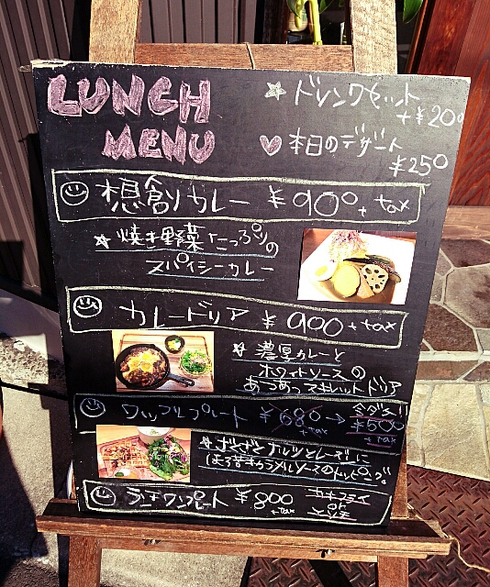 LUNCH
MENU
ドリンクセット
+¥200
本日のデザート
¥250
想創カレー ¥900+tax
焼き野菜たっぷりの
スパイシーカレー
カレードリア ¥900+tax
濃厚カレーと
ホワイトソースの
あつあつスキレットドリア
ワッフルプレート ¥680 → 今ダケ!
+tax ¥500
+tax
ざくざくナッツとレーズンに
ほろ苦キャラメルソースのトッピング。
ランチワンプレート ¥800
+tax
or